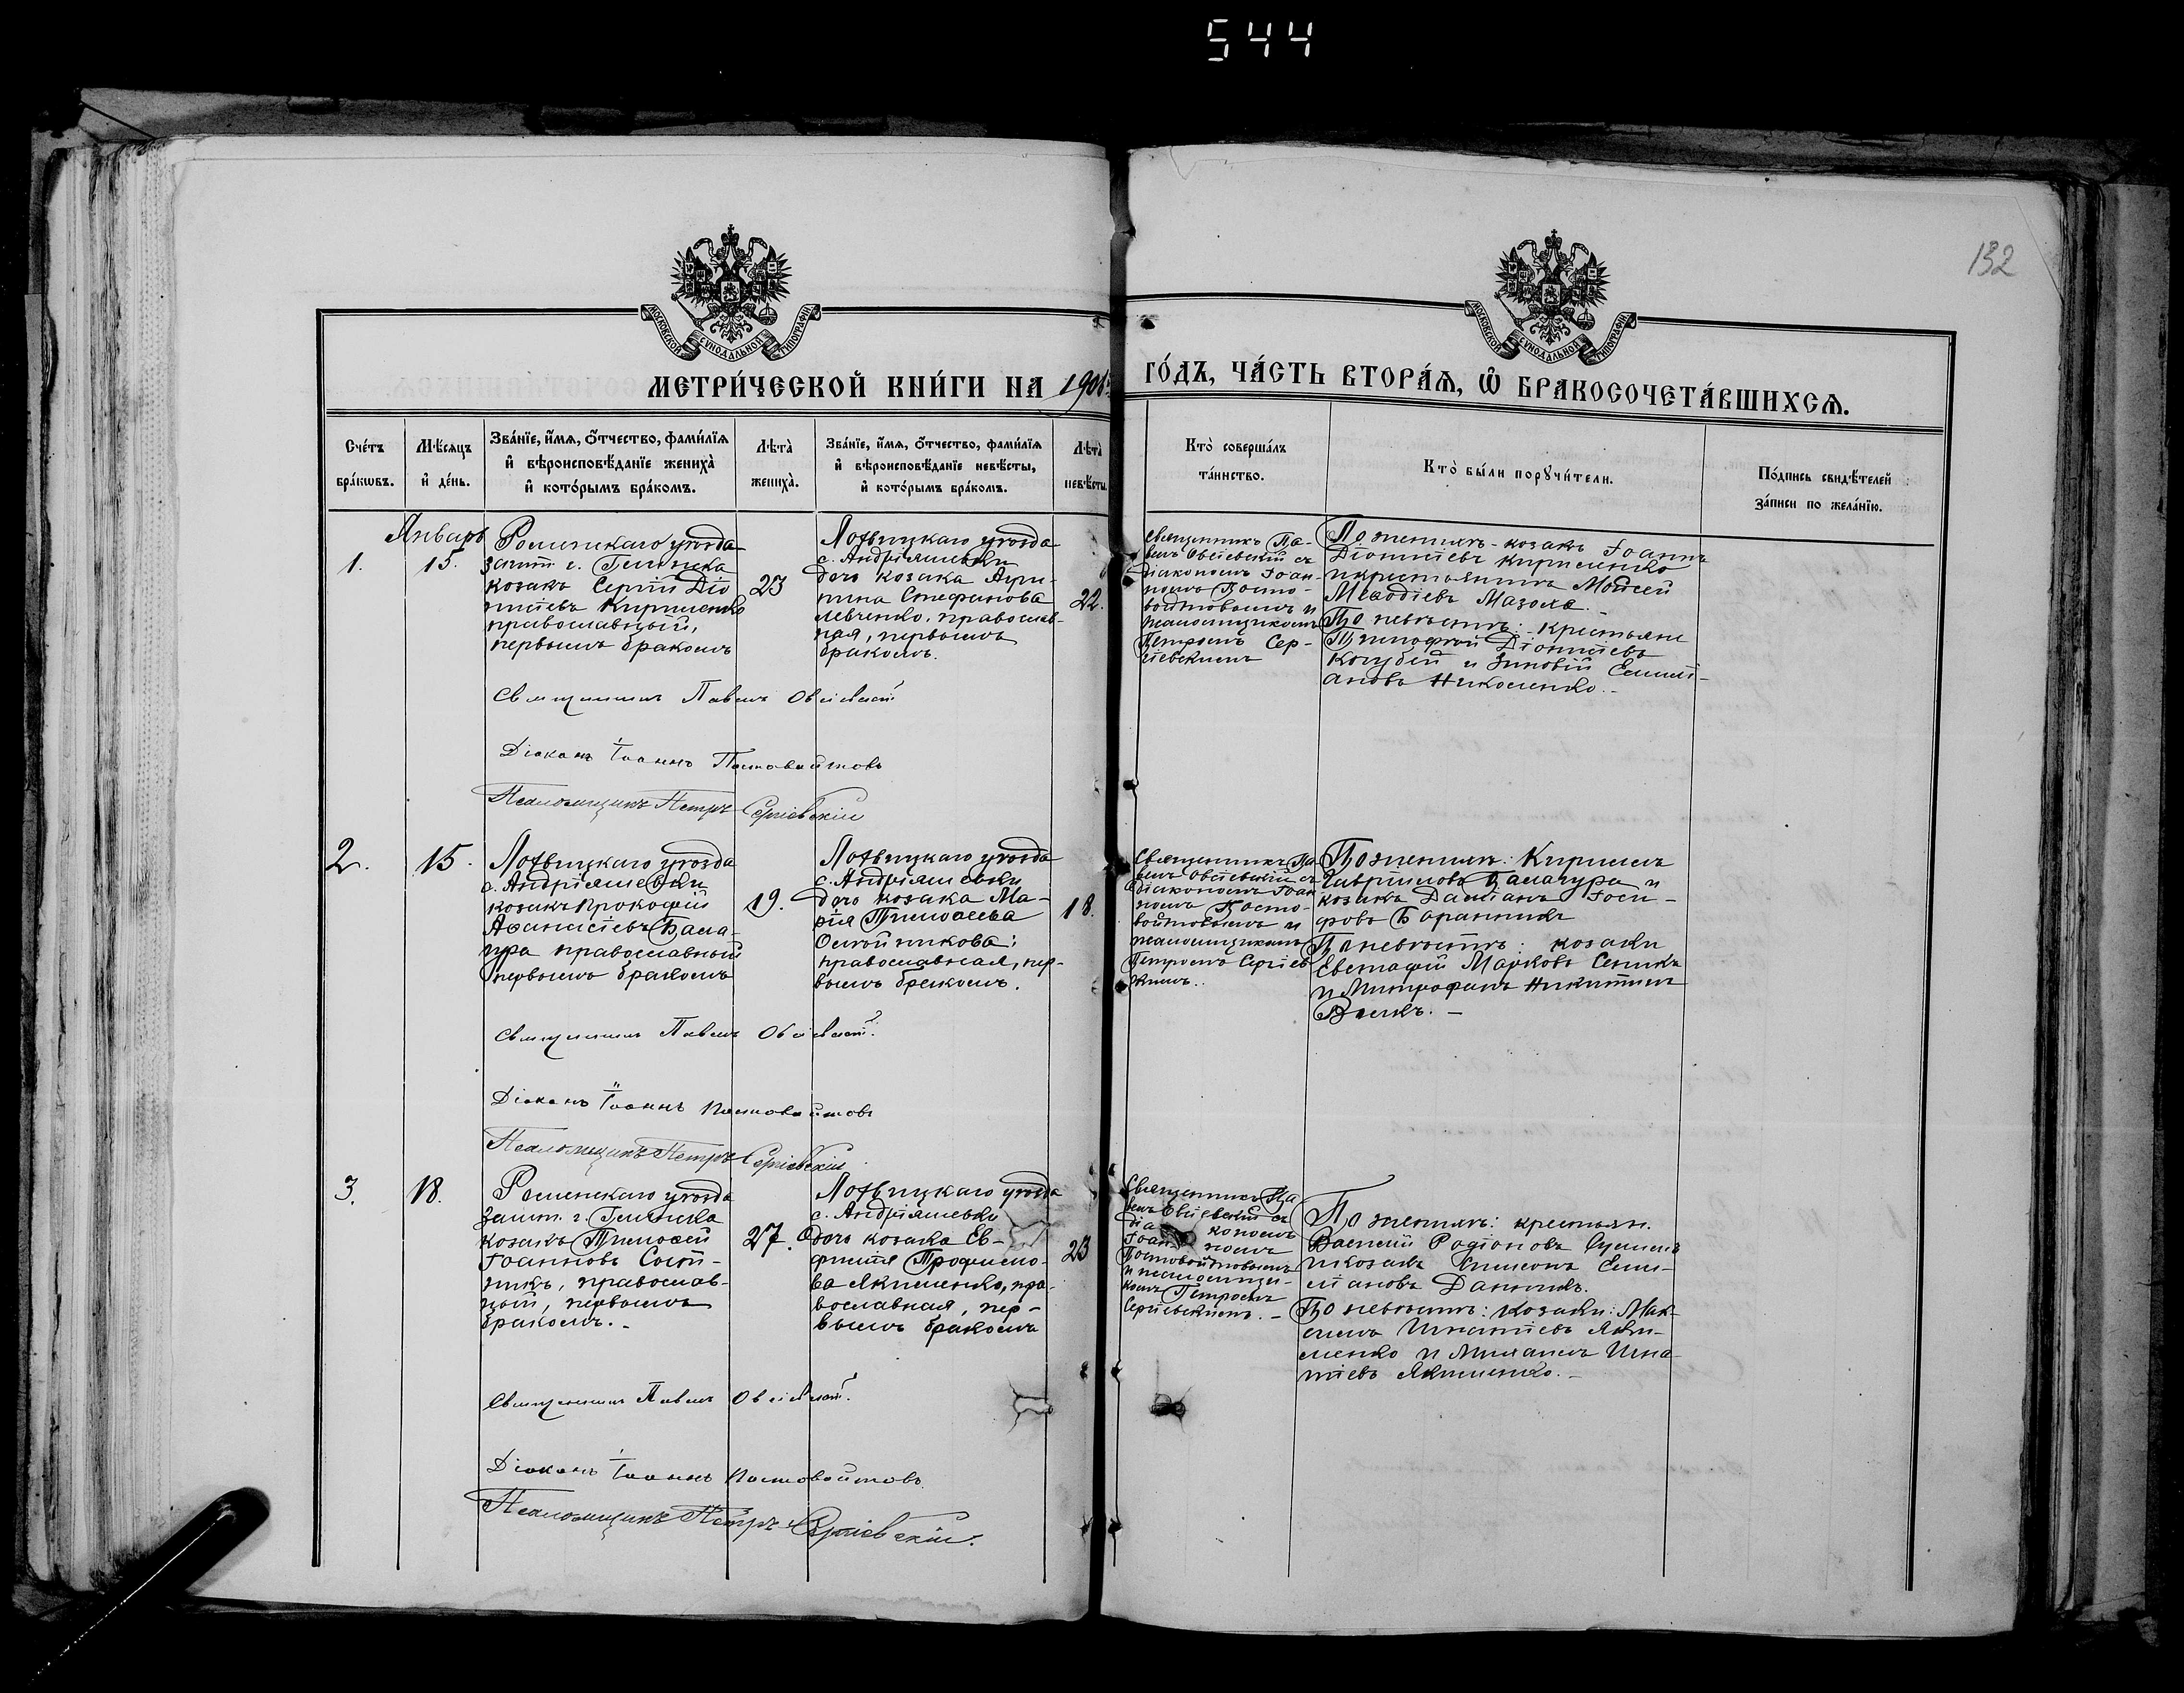 544
132
МОСКОВСКОЙ СѴНОДАЛЬНОЙ ТИПОГРАФІИ
МОСКОВСКОЙ СѴНОДАЛЬНОЙ ТИПОГРАФІИ
МЕТРИ́ЧЕСКОЙ КНИ́ГИ НА 1906
ГО́ДЪ, ЧА́СТЬ ВТОРА́Ѧ, Ѿ БРАКОСОЧЕТА́ВШИХСѦ.
Сче́тъ
бра́кѡвъ.
Мѣ́сяцъ
и҆ де́нь.
Зва́нїе, и҆́мѧ, ѻ҆́тчество, фами́лїѧ
и҆ вѣроисповѣ́данїе жениха̀
и҆ кото́рымъ бра́комъ.
Лѣта̀
жениха̀.
Зва́нїе, и҆́мѧ, ѻ҆́тчество, фами́лїѧ
и҆ вѣроисповѣ́данїе невѣ́сты,
и҆ кото́рымъ бра́комъ.
Лѣта̀
невѣ́сты.
Кто̀ соверша́лъ
та́инство.
Кто̀ бы́ли порꙋчи́тели.
По́дпись свидѣ́телей
за́писи по жела́нїю.
1.
Январь
15.
Роменскаго уѣзда
зашт. г. Глинска
козакъ Сергій Діо
нисіевъ Кириленко
православный,
первымъ бракомъ
23
Лохвицкаго уѣзда
с. Андріяшевки
дочь козака Агри-
пина Стефанова
Левченко, православ-
ная, первымъ
бракомъ.
22.
Священникъ Па-
велъ Овсіевскій съ
діакономъ Іоан-
номъ Посто-
войтовымъ и
псаломщикомъ
Петромъ Сер-
гіевскимъ
По женихѣ - козакъ Іоаннъ
Діонисіевъ Кириленко
и крестьянинъ Моѵсей
Меѳодіевъ Мазола.-
По невѣстѣ: - крестьяне
Діонисіевъ
Кочубей и Зиновій Емилі-
ановъ Николенко.-
Священникъ Павелъ Овсіевскій
Діаконъ Іоаннъ Постовойтовъ
Псаломщикъ Петръ Сергіевскій
2.
15.
Лохвицкаго уѣзда
с. Андріяшевки
козакъ Прокофій
Аѳанасіевъ Бала-
гура православный
первымъ бракомъ
19.
Лохвицкаго уѣзда
с. Андріяшевки
дочь козака Ма-
рія Тимоѳеева
православная, пер-
вымъ бракомъ.
18.
Священникъ Па-
велъ Овсіевскій съ
діакономъ Іоан
номъ Посто-
войтовымъ и
псаломщикомъ
Петромъ Сергіев
скимъ..
По женихѣ: Кириллъ
Гавріиловъ Балагура и
козакъ Даміанъ Іоси-
фовъ Баранникъ
По невѣстѣ: козаки
Евстафій Марковъ Сеникъ
и Митрофанъ Никитинъ
Волкъ. -
Священникъ Павелъ Овсіевскій.
Діаконъ Іоаннъ Постовойтовъ
Псаломщикъ Петръ Сергіевскій
3.
18.
Роменскаго уѣзда
зашт. г. Глинска
козакъ Тимоѳей
Іоанновъ Сот-
никъ, православ-
ный, первымъ
бракомъ.-
27.
Лохвицкаго уѣзда
с. Андріяшевки
дочь козака Ев-
фимія Трофимо-
ва Якименко, пра-
вославная, пер-
вымъ бракомъ
23
Священникъ Па
велъ Овсіевскій съ
діа кономъ
Іоан- номъ
Постовойтовымъ
и псаломщи-
комъ Петромъ
Сергіевскимъ. -
По женихѣ: крестьян.
Василій Родіоновъ
и козакъ Симеонъ Еми-
ліановъ Данникъ.
По невѣстѣ: козаки: Мак-
симъ Игнатіевъ Яки-
менко и Михаилъ Игна-
тіевъ Якименко.-
Священникъ Павелъ Овсіевскій.
Діаконъ Іоаннъ Постовойтовъ
Псаломщикъ Петръ Сергіевскій.